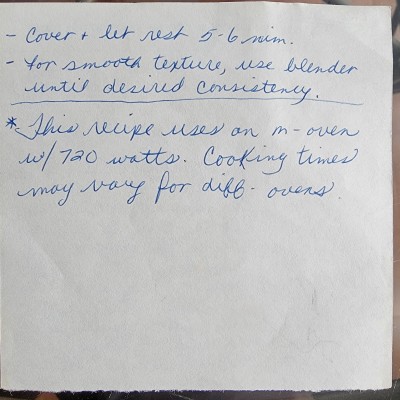 - Cover + let rest 5-6 min.
- For smooth texture, use blender
until desired consistency.
* This recipe uses an m-oven
w/ 720 watts. Cooking times
may vary for diff. ovens.